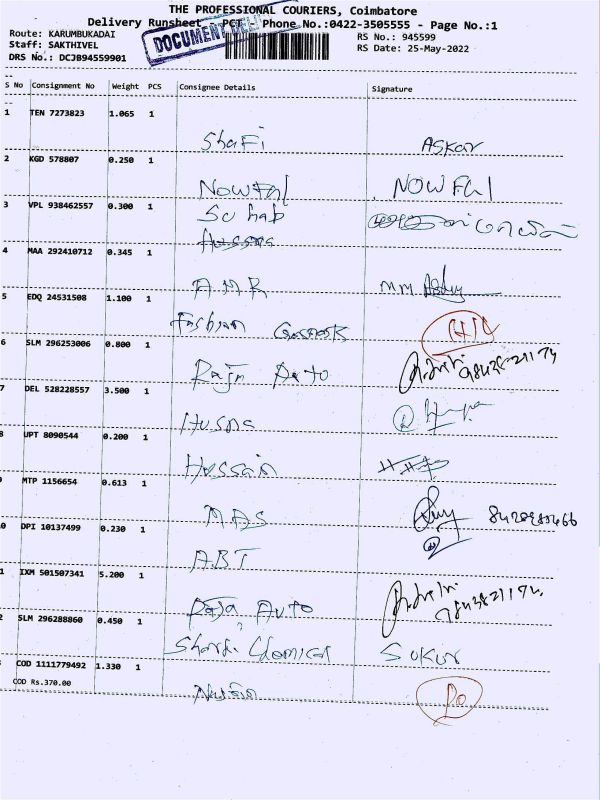 THE PROFESSIONAL COURIERS, Coimbatore
Delivery Runsheet - PCT - Phone No.:0422-3505555 - Page No.:1
Route: KARUMBUKADAI
Staff: SAKTHIVEL
DRS No.: DCJB94559901
DOCUMENT DELI
RS No.: 945599
RS Date: 25-May-2022
S No Consignment No Weight PCS Consignee Details Signature
1 TEN 7273823 1.065 1
Shafi Askar
2 KGD 578807 0.250 1
NOWFAL NOWFAL
3 VPL 938462557 0.300 1
Suhab
4 MAA 292410712 0.345 1
A.M.R M.M.
5 EDQ 24531508 1.100 1
Fashion
6 SLM 296253006 0.800 1
Raja Auto
7 DEL 528228557 3.500 1
Husna
8 UPT 8090544 0.200 1
Hussain
MTP 1156654 0.613 1
MAS
0 DPI 10137499 0.230 1
ABT
1 IXM 501507341 5.200 1
Raja Auto
2 SLM 296288860 0.450 1
Chemical Sukur
COD 1111779492 1.330 1
COD Rs.370.00